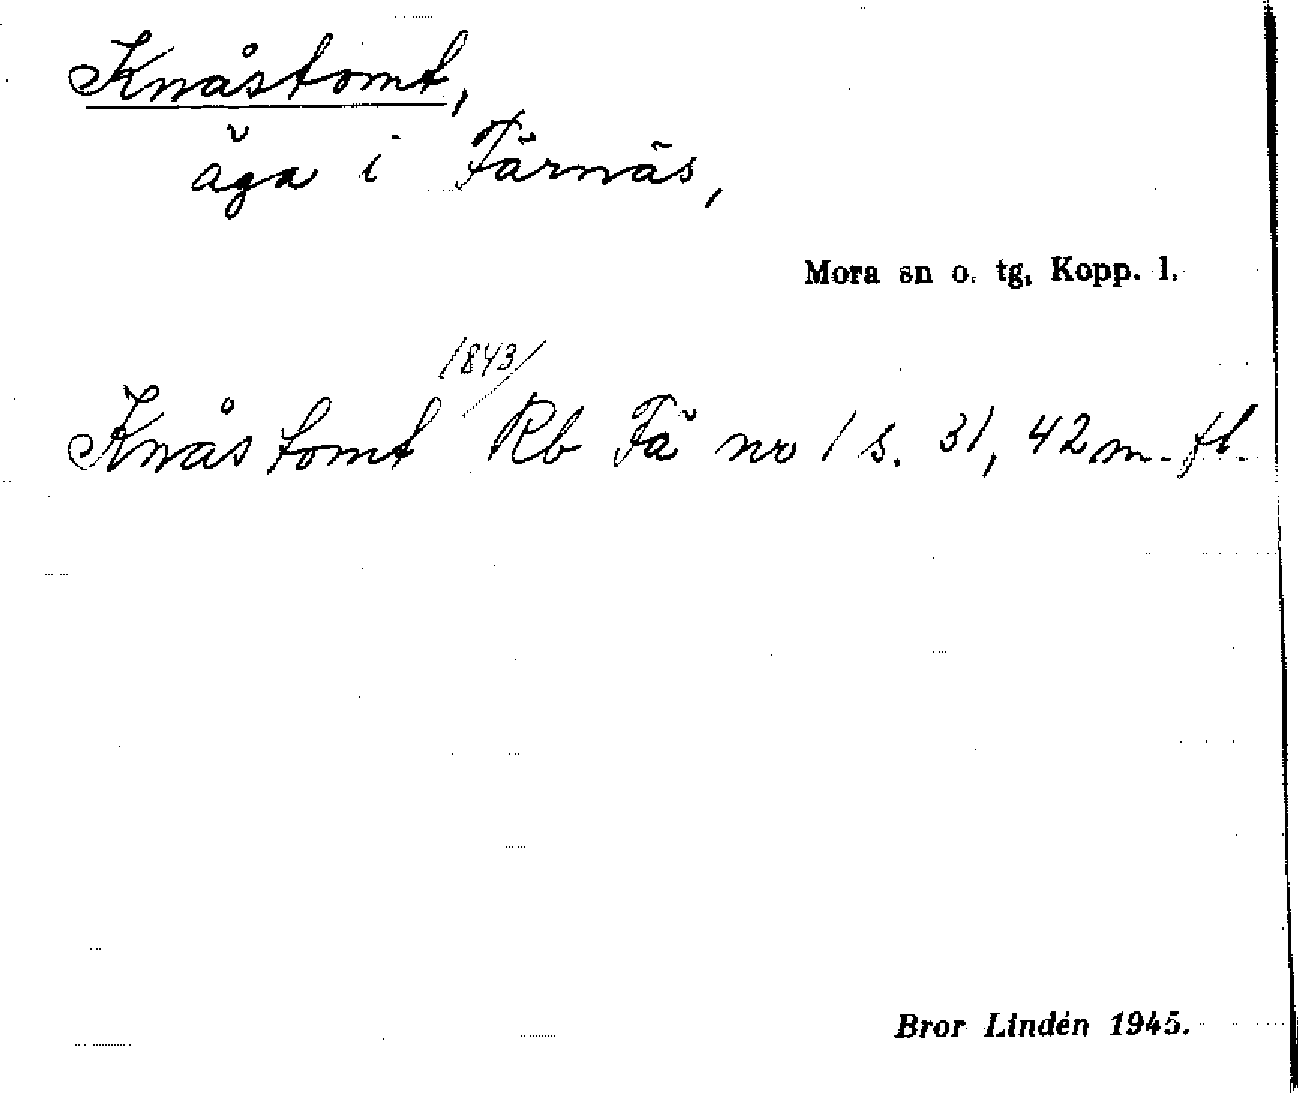 Knåstomt,
äga i Färnäs,
Mora sn o. tg, Kopp. l.
/1843/
Knåstomt Rb Fä nr 1 s. 31, 42 m. fl.
Bror Lindén 1945.